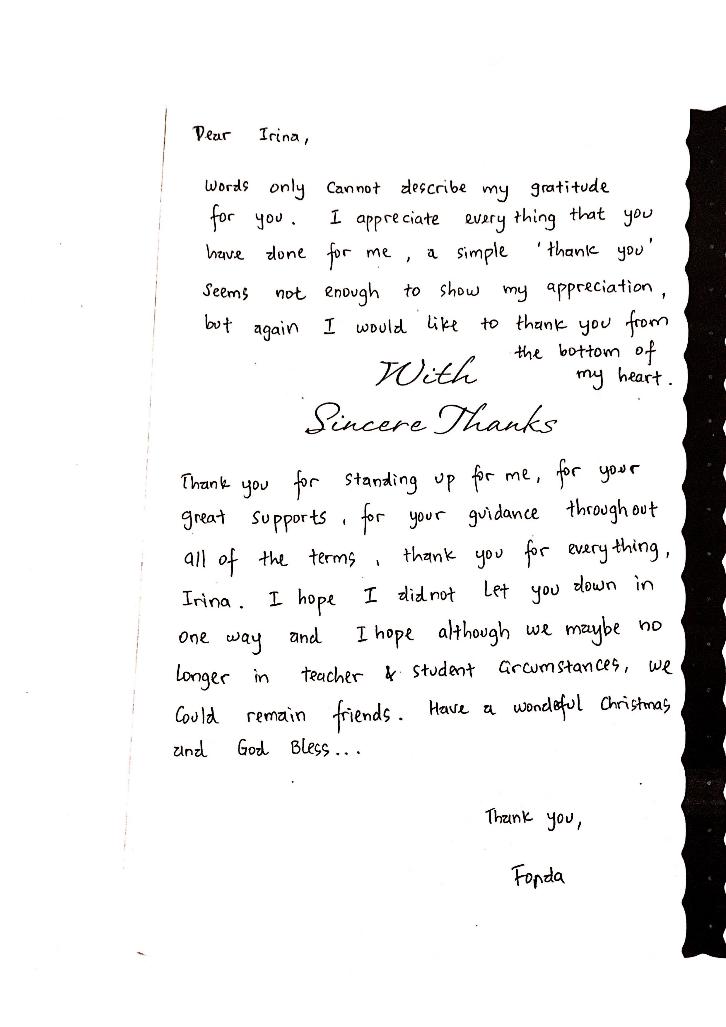 Dear Irina,
Words only cannot describe my gratitude
for you. I appreciate every thing that you
have done for me, a simple 'thank you'
seems not enough to show my appreciation,
but again I would like to thank you from
the bottom of
my heart.
With
Sincere Thanks
Thank you for standing up for me, for your
great supports, for your guidance throughout
all of the terms, thank you for everything,
Irina. I hope I did not let you down in
one way and I hope although we maybe no
longer in teacher & student circumstances, we
could remain friends. Have a wondeful Christmas
and God Bless...
Thank you,
Fonda